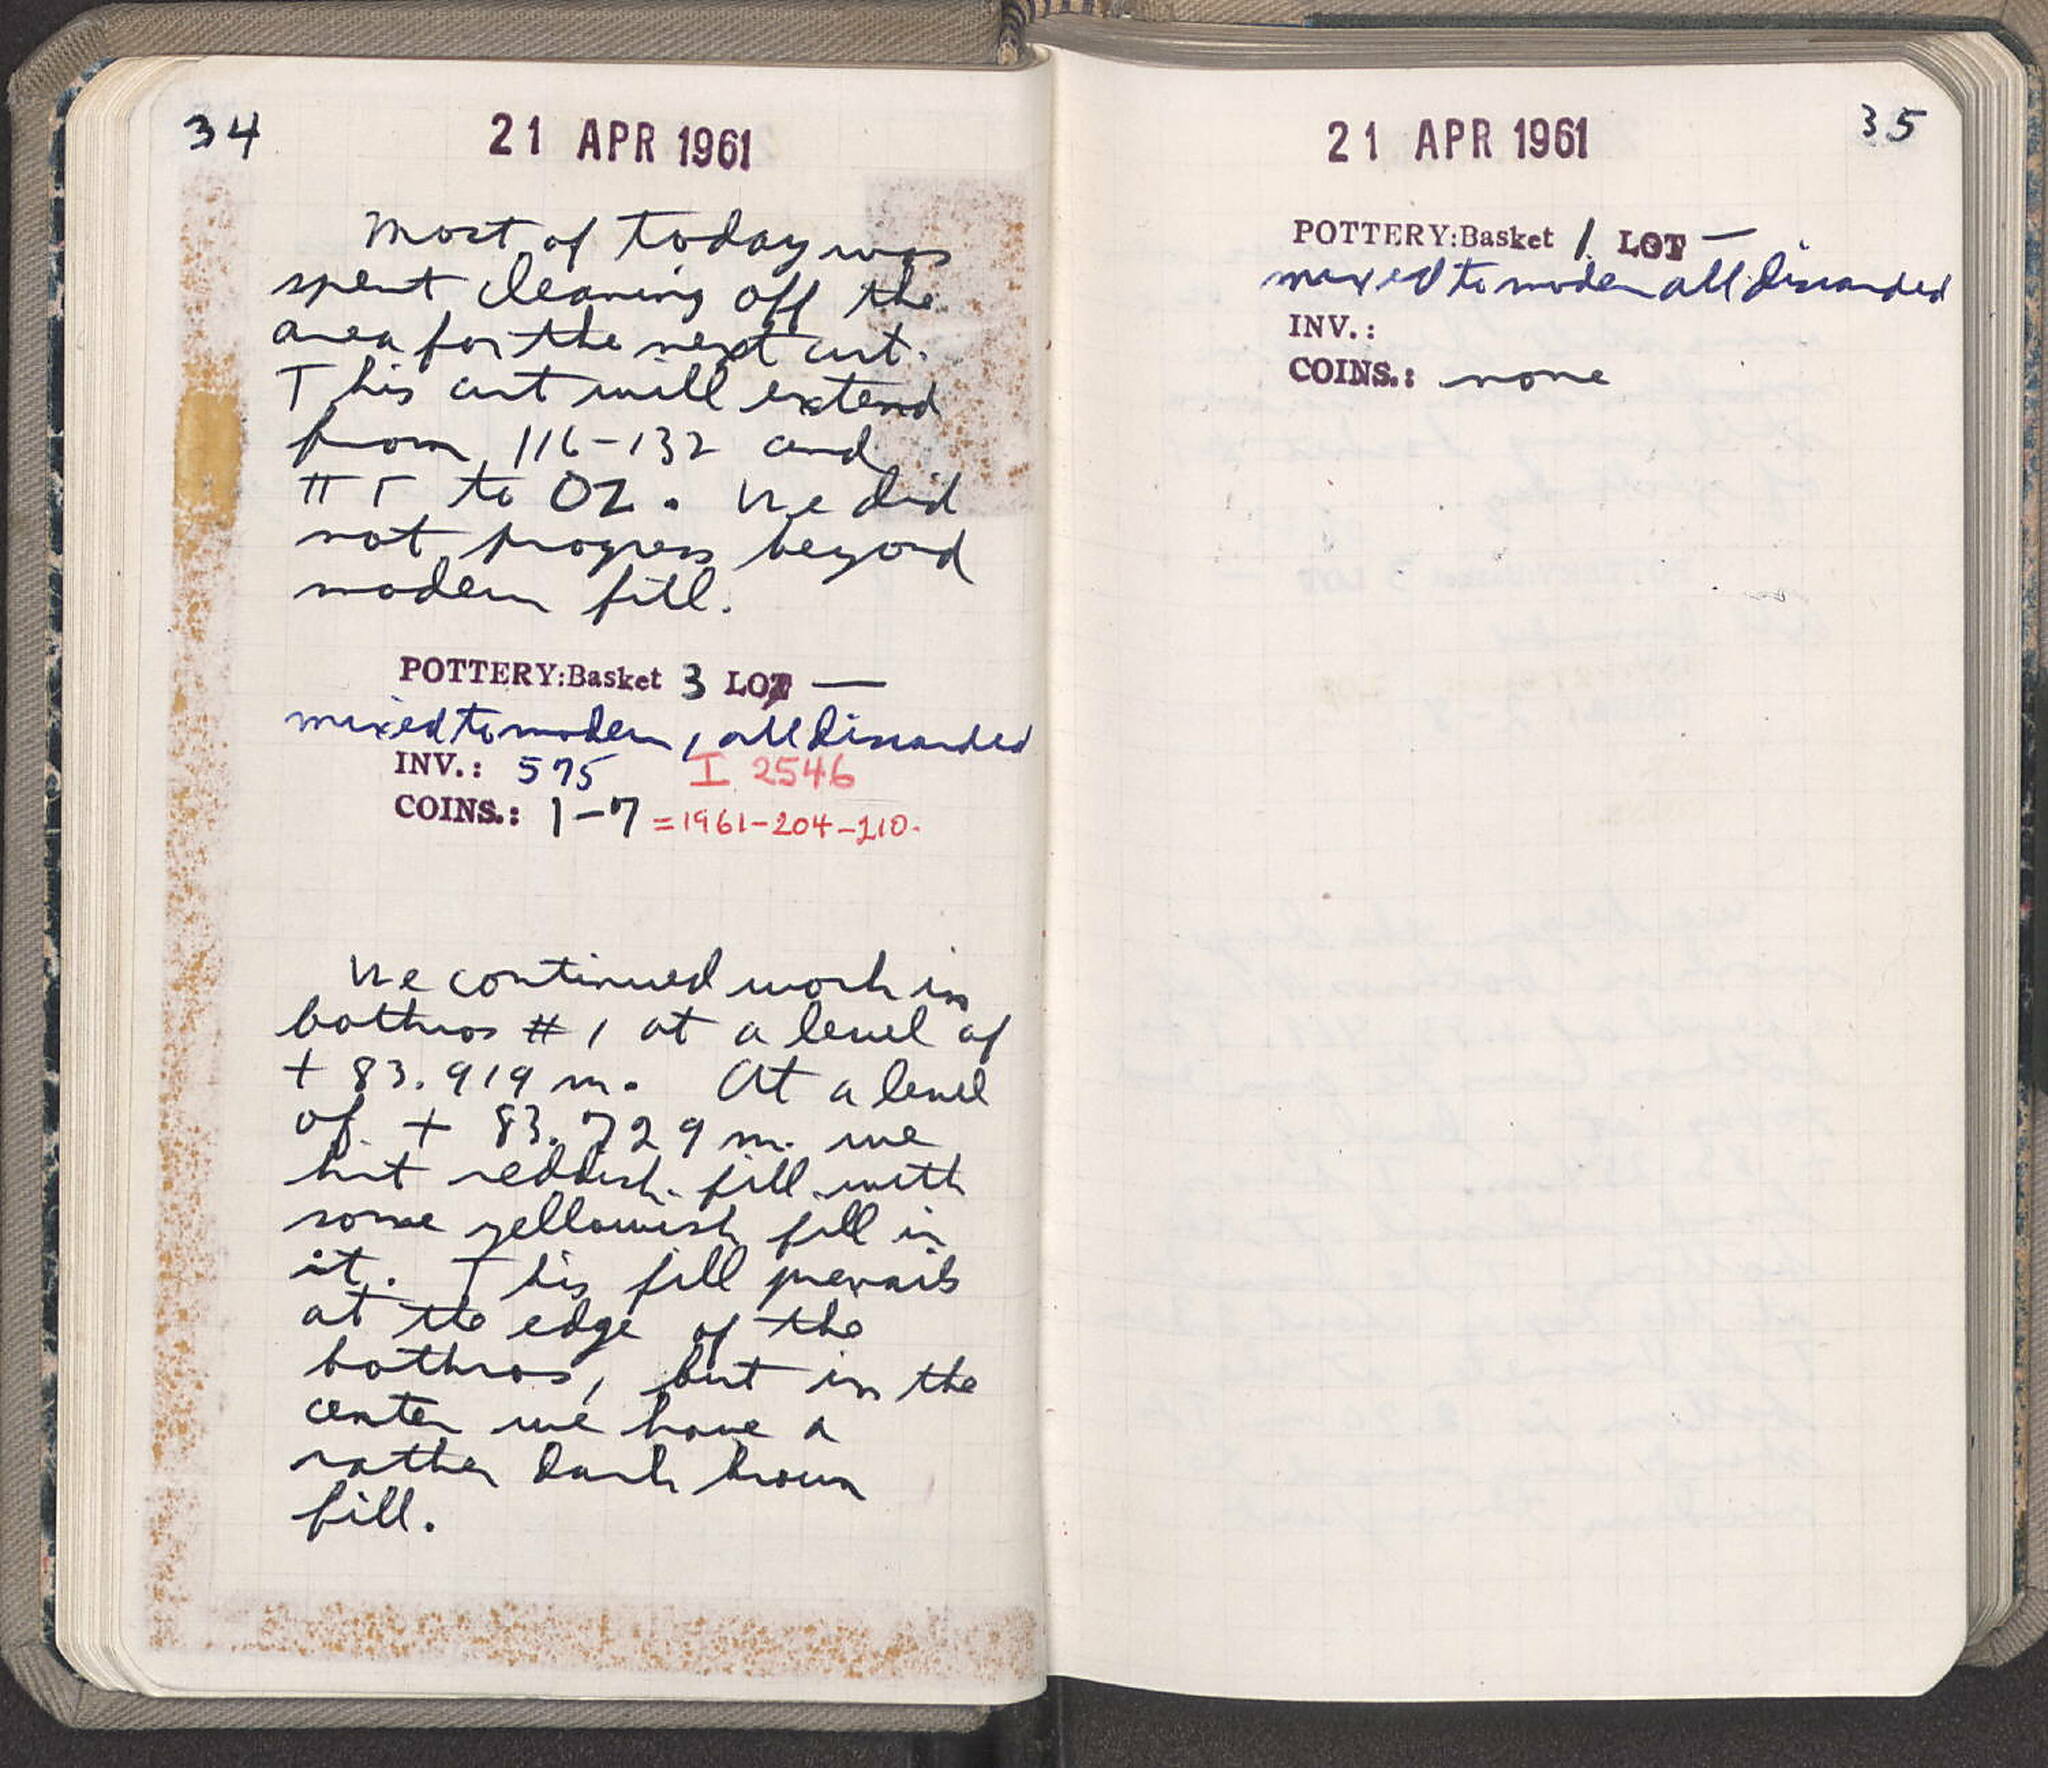 34
21 APR 1961
Most of today was
spent cleaning off the
area for the next cut.
This cut will extend
from 116-132 and
ΠΓ to OZ. We did
not progress beyond
modern fill.
POTTERY:Basket 3 LOT —
mixed to modern, all discarded
INV.: 575 I 2546
COINS.: 1-7 = 1961-204-210.
We continued work in
bothros #1 at a level of
+ 83.919 m. At a level
of + 83.729 m. we
hit reddish fill with
some yellowish fill in
it. This fill prevails
at the edge of the
bothros, but in the
center we have a
rather dark brown
fill.
21 APR 1961
35
POTTERY:Basket 1 LOT —
mixed to modern all discarded
INV.:
COINS.: none